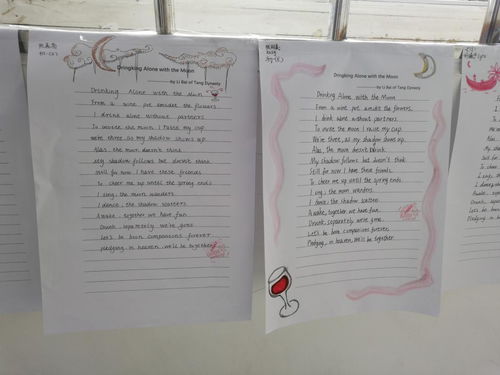 Dringking Alone with the Moon
by Li Bai of Tang Dynasty
Drinking Alone with the Moon
From a wine pot amidst the flowers
I drink alone without partners
To invite the moon I raise my cup
were three, as my shadow shows up
Alas, the moon doesn't think
My shadow follows but doesn't think
Still for now I have these friends
To cheer me up until the spring ends
I sing, the moon wanders
I dance, the shadow scatters
Awake, together we have fun
Drunk, separately we're gone
Let's be boon companions forever
pledging, in heaven, we'll be together
Dringking Alone with the Moon
by Li Bai of Tang Dynasty
Drinking Alone with the Moon
From a wine pot amidst the flowers,
I drink alone without partners.
To invite the moon I raise my cup.
We're three, as my shadow shows up.
Alas, the moon doesn't drink.
My shadow follows but doesn't think.
Still for now I have these friends,
To cheer me up until the spring ends.
I sing, the moon wanders.
I dance, the shadow scatters.
Awake, together we have fun.
Drunk, separately we're gone.
Let's be boon companions forever,
Pledging, in heaven, we'll be together.